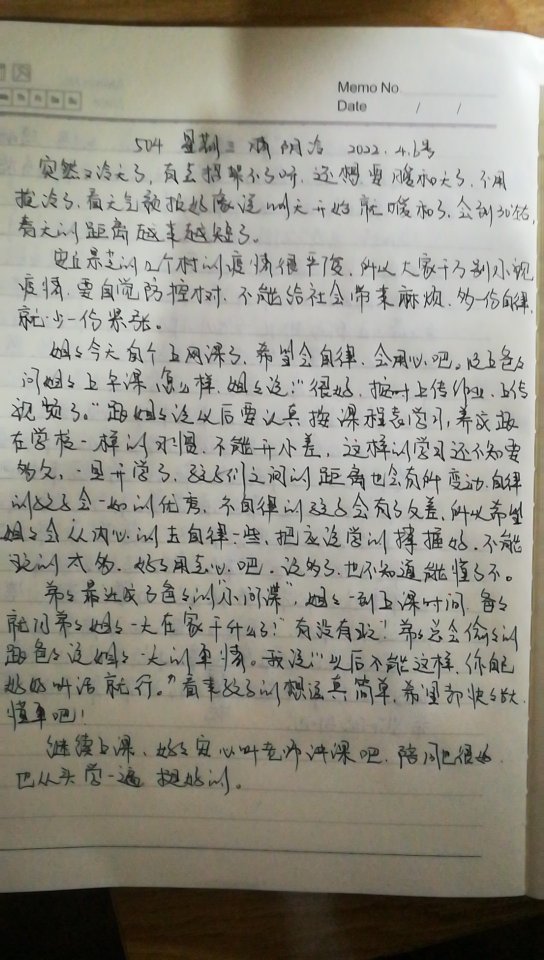 Memo No
Date / /
504 星期三 晴 阴冷 2022.4.6号
突然又冷天了，有点招架不了呀，还想要暖和天了，不用
挨冷了，看天气预报好像说明天开始就暖和了，会到30左右，
春天的距离越来越短了。
安丘景芝的几个村的疫情很严复，所以大家千万别小视
疫情，要自觉防控树，不能给社会带来麻烦，多一份自律，
就少一份紧张。
姐姐今天自个上网课了，希望会自律，会用心吧。晚上爸爸
问姐姐上午课怎么样，姐姐说："很好，按时上传作业，上传
视频了。"跟姐姐说以后要认真按课程表学习，养成跟
在学校一样的习惯，不能开小差，这样的学习还不知要
多久，一旦开学了，孩子们之间的距离也会有所变动，自律
的孩子会一如的优秀，不自律的孩子会有了反差，所以希望
姐姐会从内心的去自律一些，把应该学的掌握好，不能
玩的太多，好好用点心吧，说多了也不知道能懂了不。
弟弟最近成了爸爸的"小间谍"，姐姐一到上课时间，爸爸
就问弟弟姐姐一大在家干什么了？有没有玩？弟弟总会偷偷的
跟爸爸说姐姐一大的事情。我说："以后不能这样，你自己
好好听话就行。"看来孩子的想法真简单，希望都快快长大，
懂事吧！
继续上课，好好安心听老师讲课吧，陪同也很好，
也从头学一遍 挺好的。